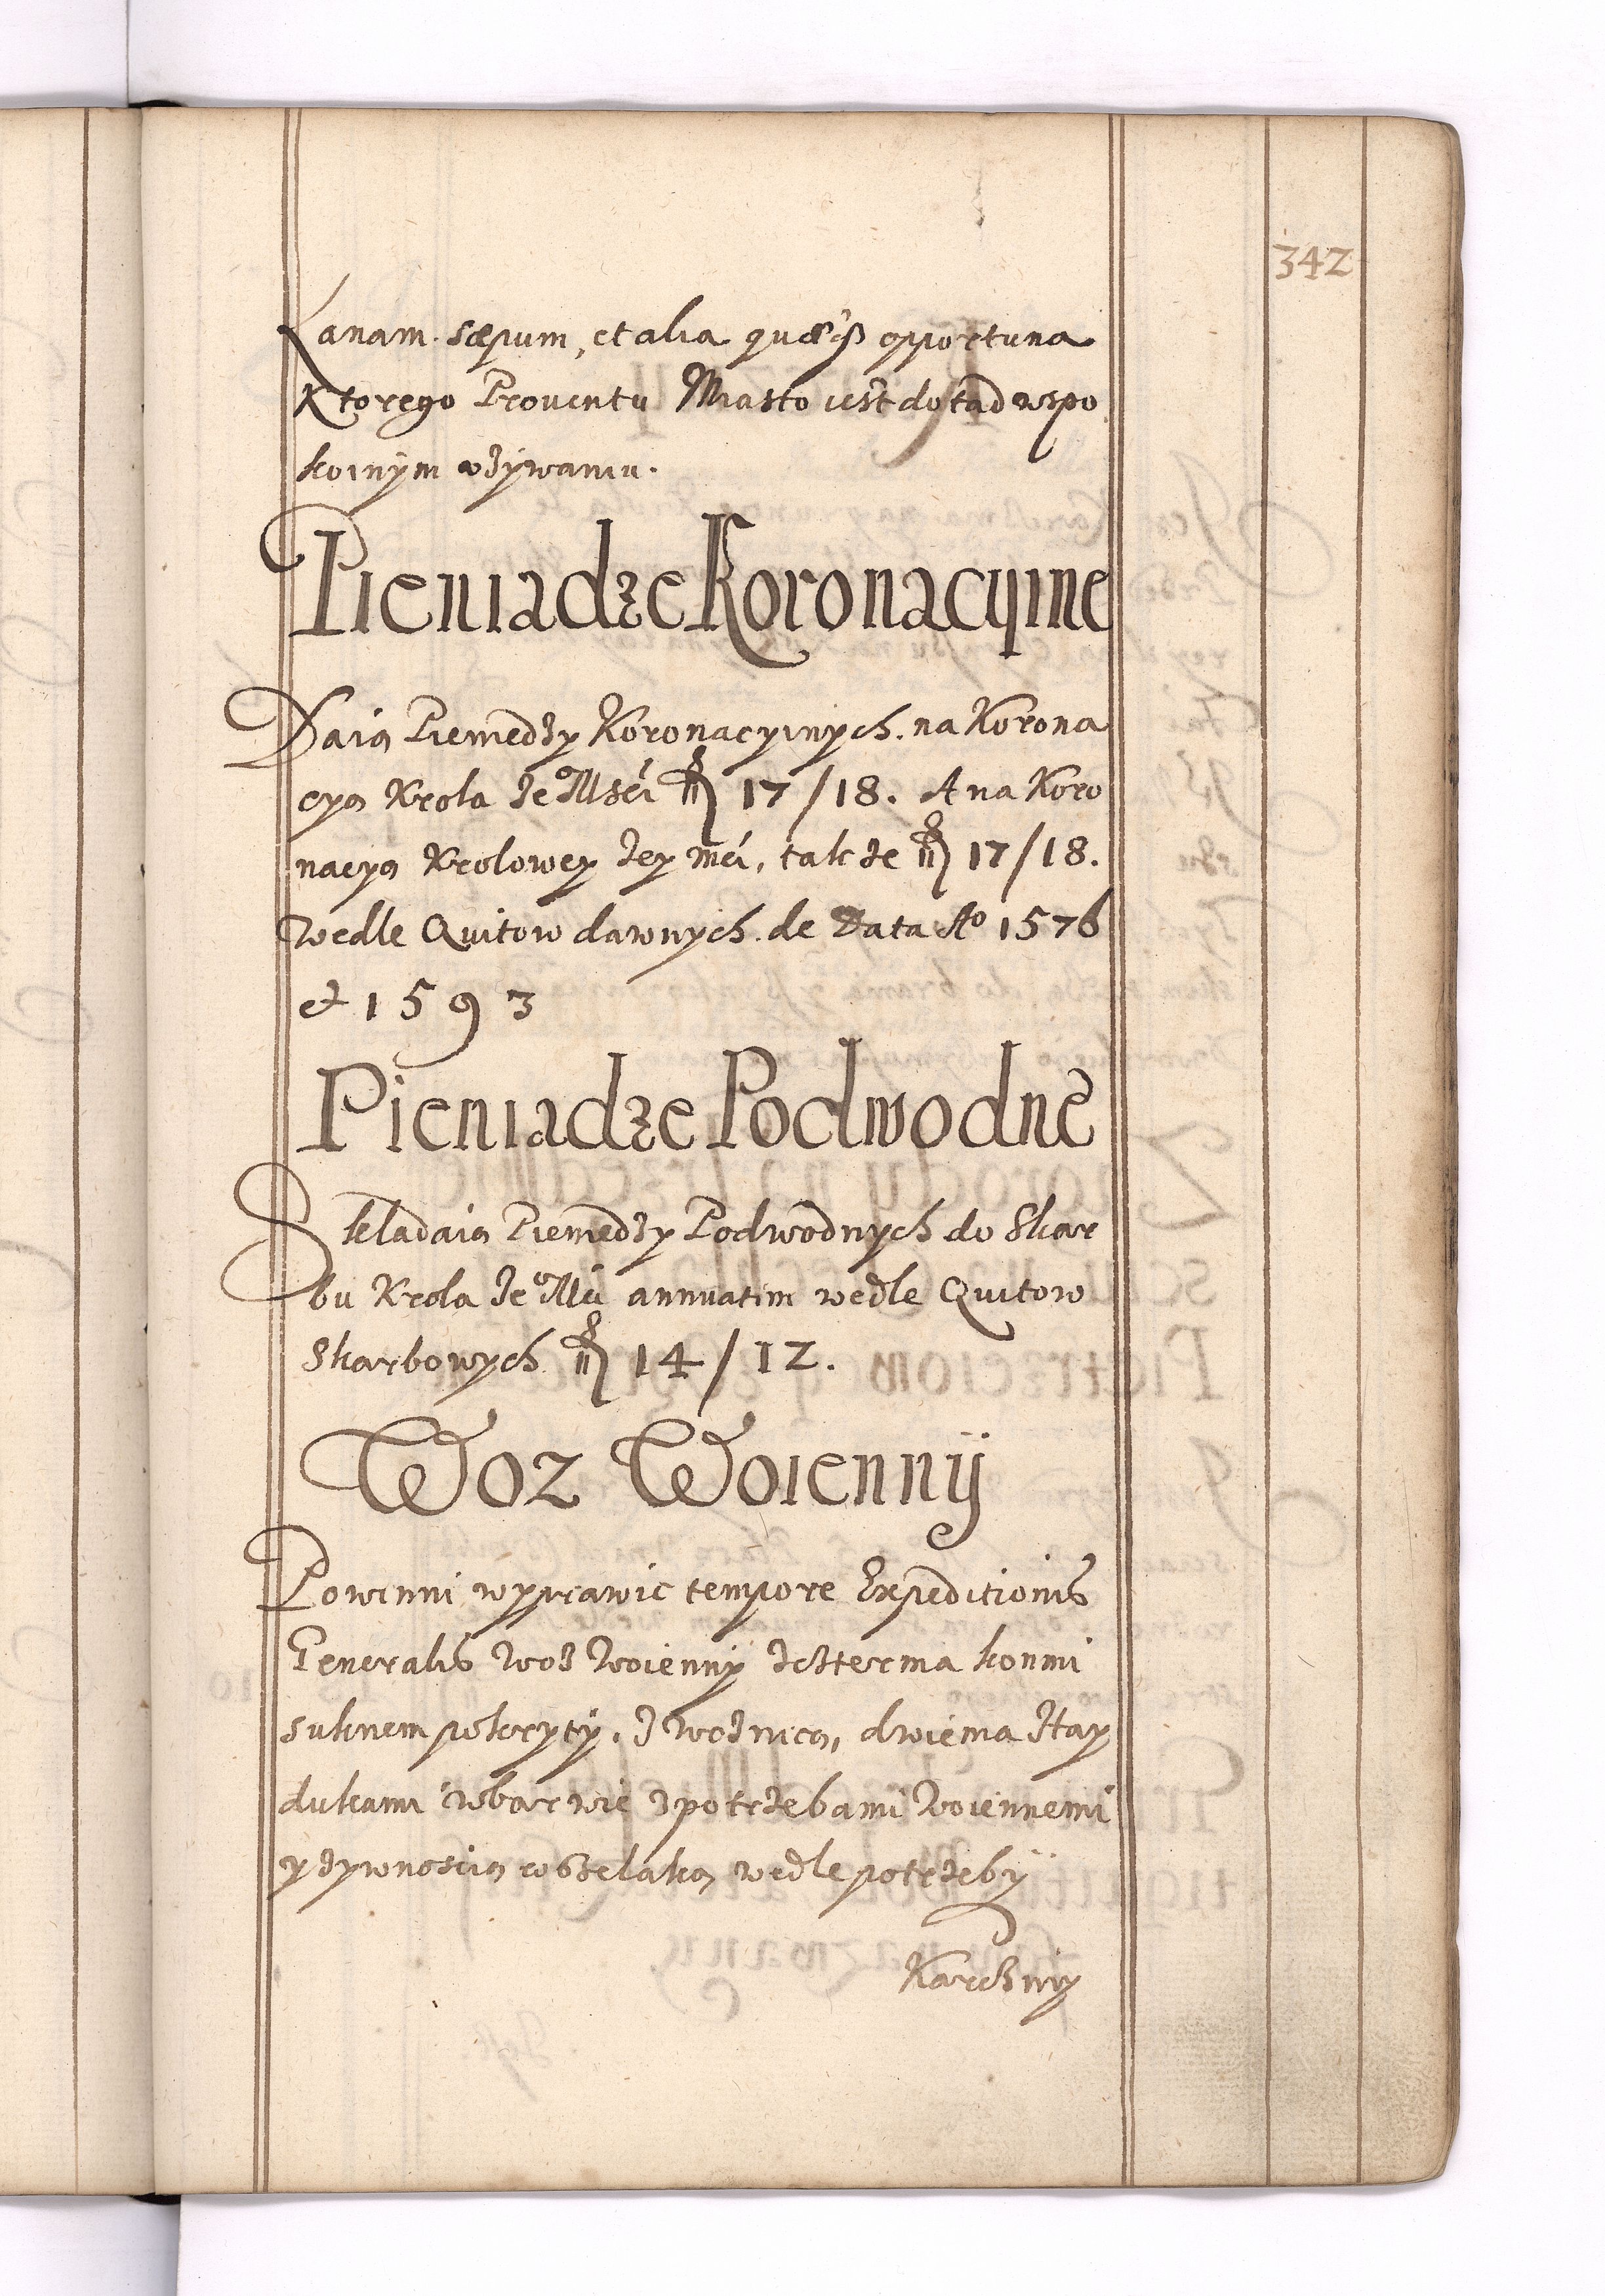 342
Lanam. sæpum, et alia quæqȝ opportuna
Ktorego Prouentu Miasto iest dotad wspo
koinÿm vżÿwaniu.
Pieniadze Koronacyine
Daią Pieniedzy Koronacyinych. na Korona
cyą Krola Je⁰ Mści fl 17/18. A na Koro
nacyą Krolowey Jey Mći, także fl 17/18.
Wedle Quitow dawnych. de Data A⁰ 1576
et 1593
Pieniadze Podwodne
Skladaią Pieniedzy Podwodnych do Skar
bu Krola Je⁰ Mći annuatim wedle Quitow
Skarbowych fl 14/12.
Woz Woiennÿ
Powinni wyprawic tempore Expeditionis
Generalis woz woienny zczterma konmi
suknem pokrytÿ, z woznicą, dwiema Hay
dukami wbarwie zpotrzebami woiennemi
y zywnoscią wszelaką wedle potrzebÿ
Karczmy